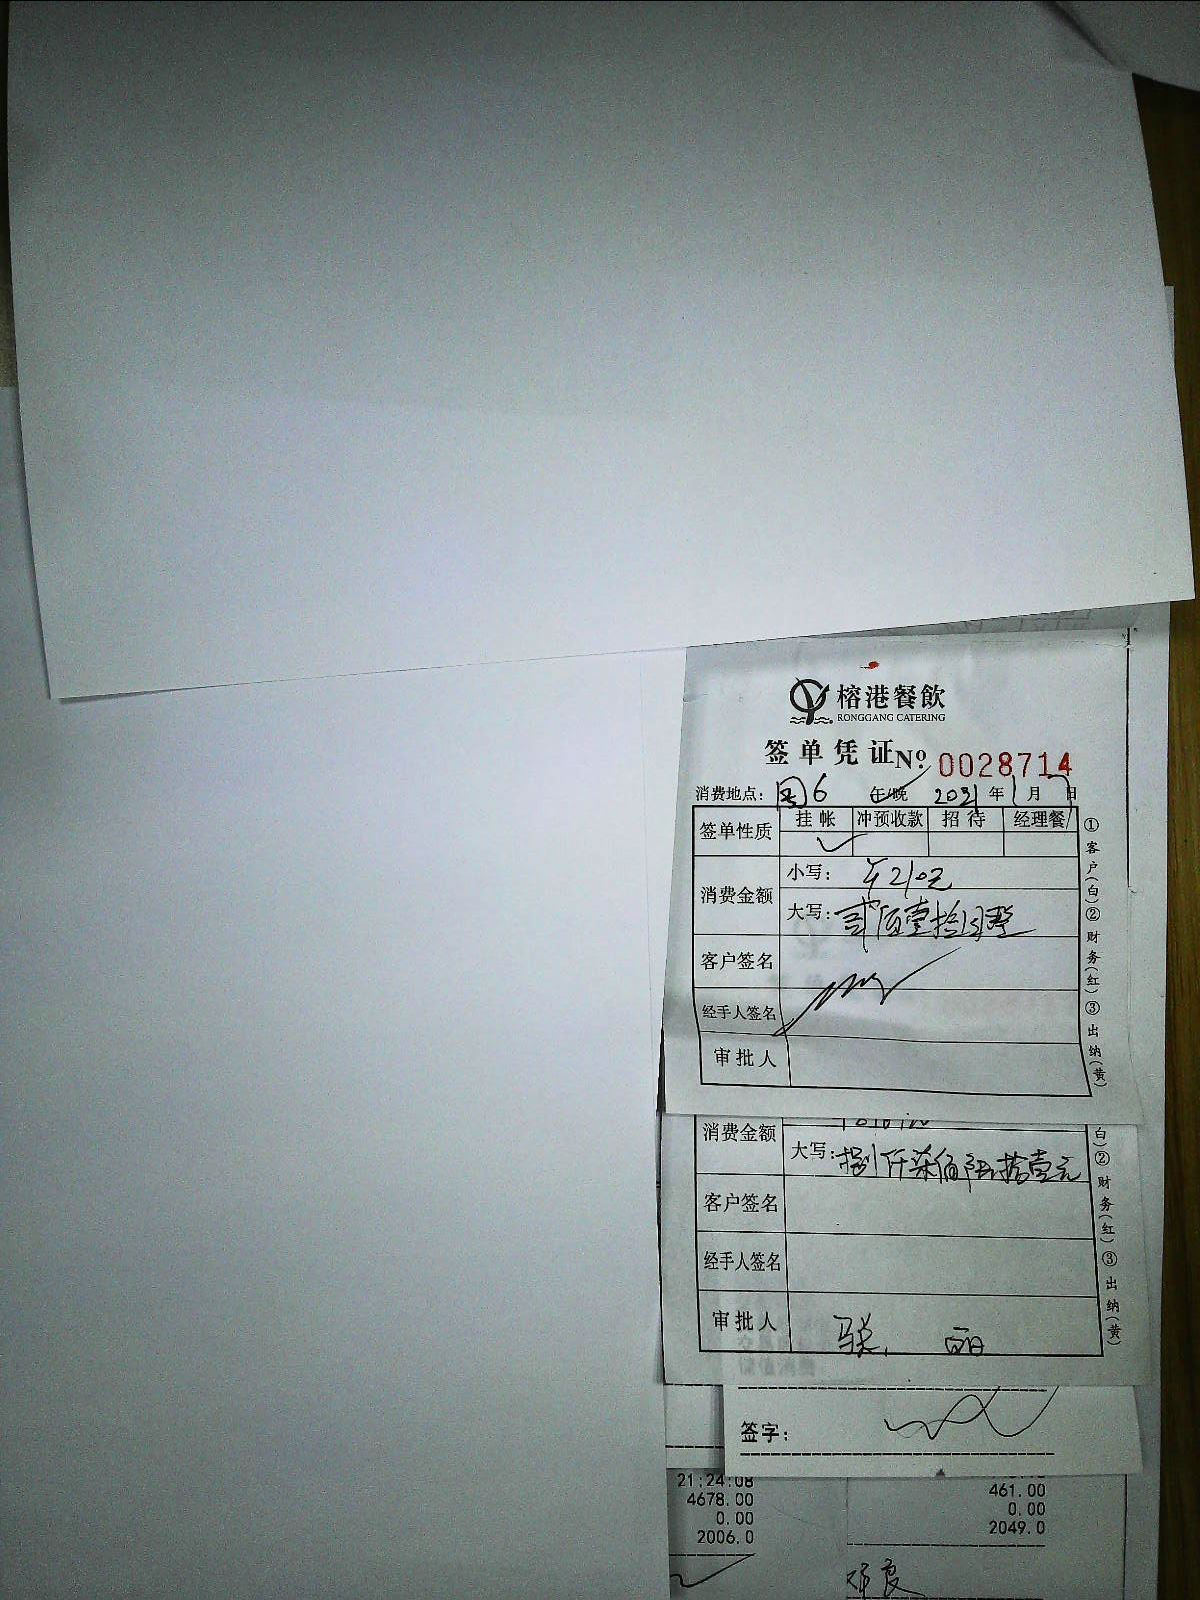 榕港餐飲
RONGGANG CATERING
签单凭证 No 0028714
消费地点: 国6 午/晚 2021年1月7日
签单性质 挂帐 冲预收款 招待 经理餐
消费金额 小写: ¥210元
大写: 贰佰壹拾元整
客户签名
经手人签名
审批人
①客户(白)②财务(红)③出纳(黄)
消费金额
大写: 捌仟柒佰 拾壹元
客户签名
经手人签名
审批人
白)②财务(红)③出纳(黄)
签字:
21:24:08
4678.00
0.00
2006.0
461.00
0.00
2049.0